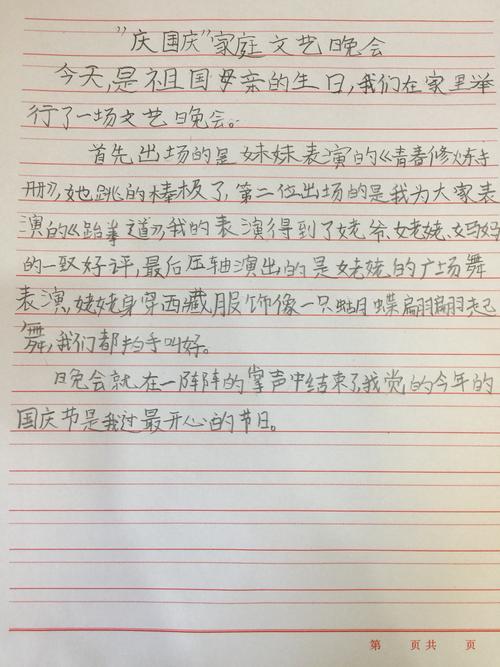 “庆国庆”家庭文艺晚会
今天,是祖国母亲的生日,我们在家里举
行了一场文艺晚会。
首先出场的是妹妹表演的《青春修炼手
册》,她跳的棒极了,第二位出场的是我为大家表
演的《跆拳道》,我的表演得到了姥爷、姥姥、妈妈
的一致好评,最后压轴演出的是姥姥的广场舞
表演,姥姥身穿西藏服饰像一只蝴蝶翩翩起
舞,我们都拍手叫好。
晚会就在一阵阵的掌声中结束了,我觉的今年的
国庆节是我过最开心的节日。
第 页共 页